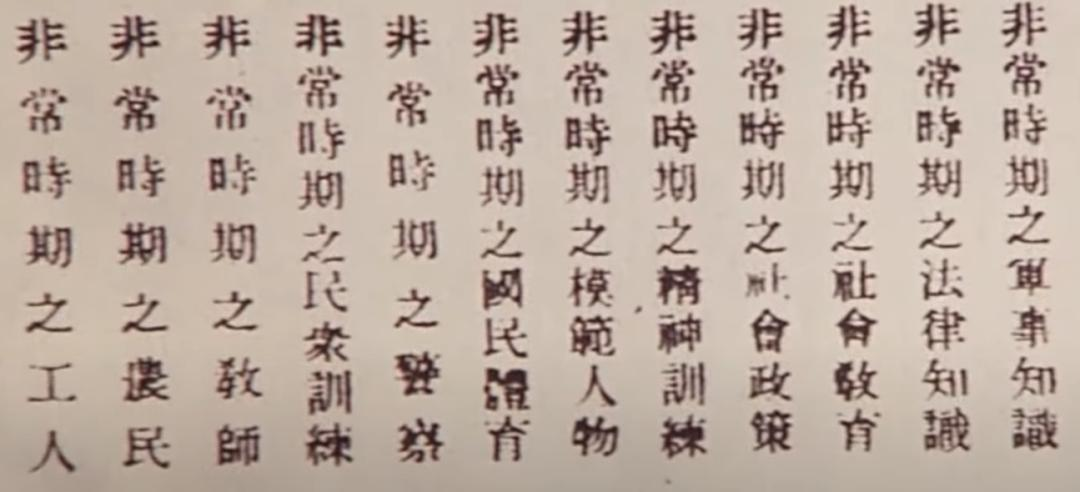 非常時期之軍事知識
非常時期之法律知識
非常時期之社會教育
非常時期之社會政策
非常時期之精神訓練
非常時期之模範人物
非常時期之國民體育
非常時期之警察
非常時期之民眾訓練
非常時期之教師
非常時期之農民
非常時期之工人